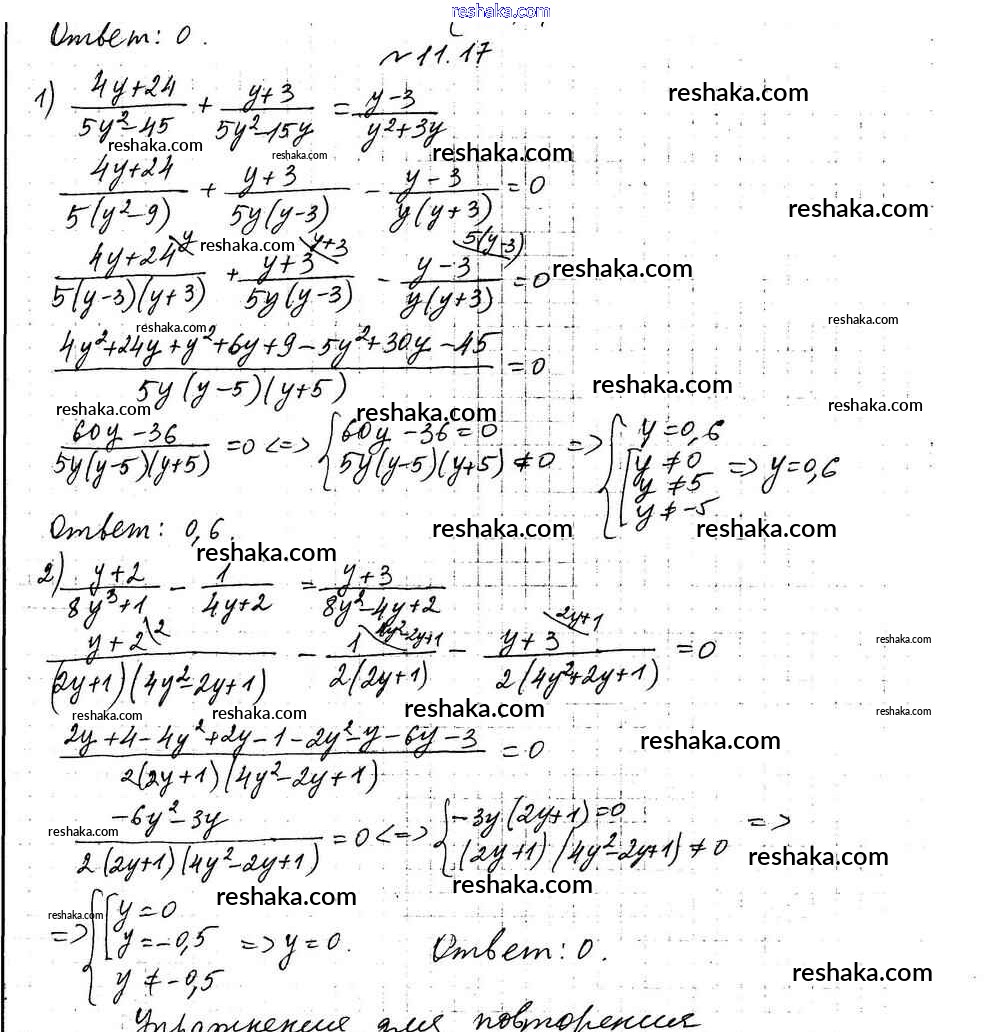 reshaka.com
Ответ: 0.
№11.17
1) (4y+24)/(5y²-45) + (y+3)/(5y²-15y) = (y-3)/(y²+3y)
reshaka.com
reshaka.com reshaka.com reshaka.com
(4y+24)/(5(y²-9)) + (y+3)/(5y(y-3)) - (y-3)/(y(y+3)) = 0
reshaka.com
(4y+24\y)/(5(y-3)(y+3)) + (y+3\y+3)/(5y(y-3)) - (y-3\5(y-3))/(y(y+3)) = 0
reshaka.com reshaka.com
reshaka.com reshaka.com
(4y²+24y+y²+6y+9-5y²+30y-45)/(5y(y-5)(y+5)) = 0
reshaka.com
reshaka.com reshaka.com reshaka.com
(60y-36)/(5y(y-5)(y+5)) = 0 <=> { 60y-36=0 5y(y-5)(y+5)≠0 => { y=0,6 [ y≠0 y≠5 y≠-5 => y=0,6
Ответ: 0,6.
reshaka.com reshaka.com reshaka.com
2) (y+2)/(8y³+1) - 1/(4y+2) = (y+3)/(8y²-4y+2)
(y+2\2)/((2y+1)(4y²-2y+1)) - (1\4y²-2y+1)/(2(2y+1)) - (y+3\2y+1)/(2(4y²+2y+1)) = 0
reshaka.com
reshaka.com reshaka.com reshaka.com reshaka.com
(2y+4-4y²+2y-1-2y²-y-6y-3)/(2(2y+1)(4y²-2y+1)) = 0
reshaka.com
(-6y²-3y)/(2(2y+1)(4y²-2y+1)) = 0 <=> { -3y(2y+1)=0 (2y+1)(4y²-2y+1)≠0 =>
reshaka.com reshaka.com
reshaka.com reshaka.com
=> { [ y=0 y=-0,5 y≠-0,5 => y=0. Ответ: 0.
reshaka.com reshaka.com
Упражнения для повторения